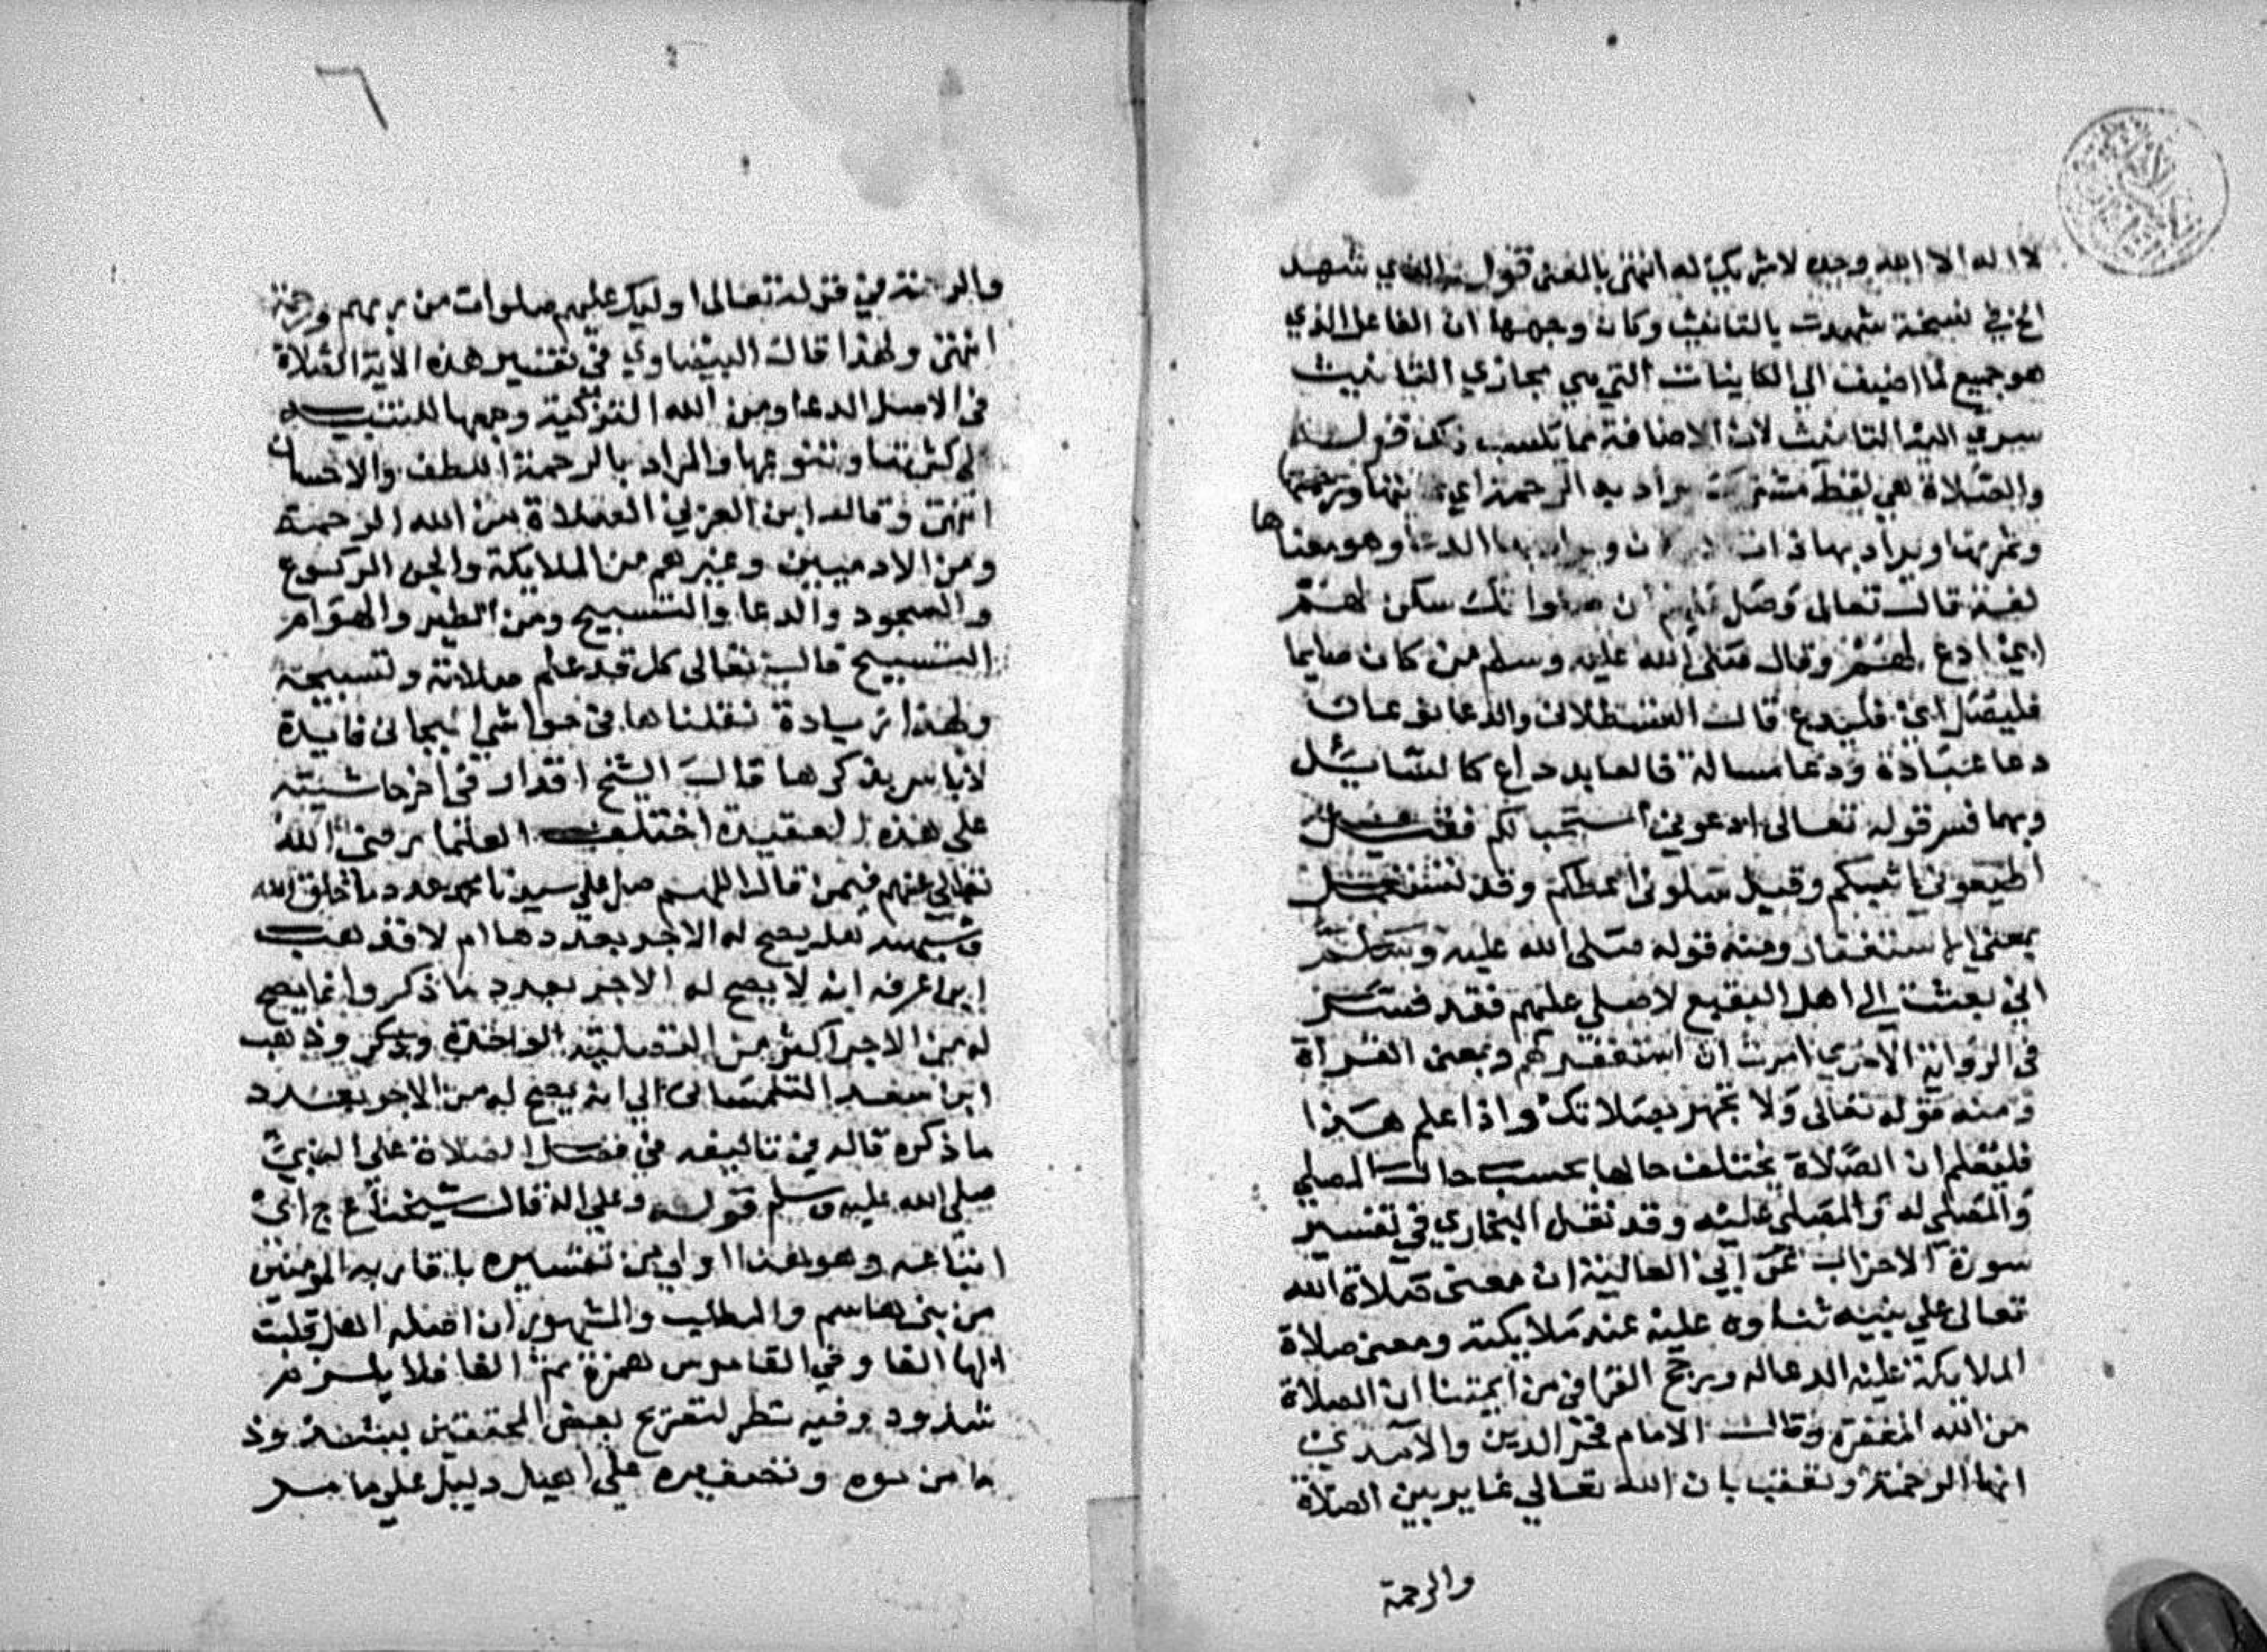 لا اله الا الله وحده لا شريك له انتهى بالمعنى قوله الذي شهد
الخ في نسخة شهدت بالتانيث وكان وجهها ان الفاعل الذي
هو جميع لما اضيف الى الكاينات التي هي مجازي التانيث
سري اليه التانيث لان الاضافة مما تكسب ذلك قوله
والصلاة هي لفظ مشترك يراد به الرحمة اي
وثمرتها ويراد بها ذات ويراد بها الدعا وهو معناها
لغة قال تعالى وصل عليهم ان صلواتك سكن لهم
اي ادع لهم وقال صلى الله عليه وسلم من كان صايما
فليصل اي فليدع قال القسطلاني والدعا نوعان
دعا عبادة ودعا مسالة فالعابد داع كالسائل
وبهما فسر قوله تعالى ادعوني استجب لكم فقيل
اطيعوني اثيبكم وقيل سلوني اعطكم وقد تستعمل
بمعنى الاستغفار ومنه قوله صلى الله عليه وسلم
اني بعثت الي اهل البقيع لاصلي عليهم فقد فسر
في الرواية الاخرى امرت ان استغفر لهم وبمعنى القراة
ومنه قوله تعالى ولا تجهر بصلاتك واذا علم هذا
فليعلم ان الصلاة يختلف حالها بحسب حال المصلي
والمصلى له والمصلى عليه وقد نقل البخاري في تفسير
سورة الاحزاب عن ابي العالية ان معنى صلاة الله
تعالى علي نبيه ثناوه عليه عند ملايكته ومعنى صلاة
الملايكة عليه الدعا له ورجح القرافي من ايمتنا ان الصلاة
من الله المغفرة وقال الامام فخر الدين والآمدي
انها الرحمة وتعقب بان الله تعالي غاير بين الصلاة
والرحمة
٦
والرحمة في قوله تعالى اوليك عليهم صلوات من ربهم ورحمة
انتهى ولهذا قال البيضاوي في تفسير هذه الاية الصلاة
في الاصل الدعا ومن الله التزكية وجمعها للتنبيه
لكثرتها وتنوعها والمراد بالرحمة اللطف والاحسان
انتهى وقال ابن العربي الصلاة من الله الرحمة
ومن الادميين وغيرهم من الملايكة والجن الركوع
والسجود والدعا والتسبيح ومن الطير والهوام
التسبيح قال تعالى كل قد علم صلاته وتسبيحه
ولهذا زيادة نقلناها في حواشي فايدة
لا باس بذكرها قال الشيخ اقدار في اخر حاشيته
على هذه العقيدة اختلف العلما رضي الله
تعالي عنهم فيمن قال اللهم صل علي سيدنا محمد عدد ما خلق الله
وشبهه هل يصح له الاجر بعددها ام لا فذهب
ابن عرفة انه لا يصح له الاجر بعدد ما ذكر وانما يصح
له من الاجر اكثر من التصلية الواحدة وذهب
ابن سعد التلمساني الي انه يصح له من الاجر بعدد
ما ذكره قاله في تاليفه في فضل الصلاة على النبي
صلى الله عليه وسلم قوله وعلي اله قال شيخنا ع ج اي
اتباعه وهو هنا اولي من تفسيره باقاربه المومنين
من بني هاشم والمطلب والمشهور ان اصله اهل قلبت
الها الفا وفي القاموس همزة ثم الفا فلا يلزم
شذوذ وفيه نظر لتصريح بعض المحققين بشذوذ
ما من نوه وتصغيره علي اهيل دليل علي ما مر